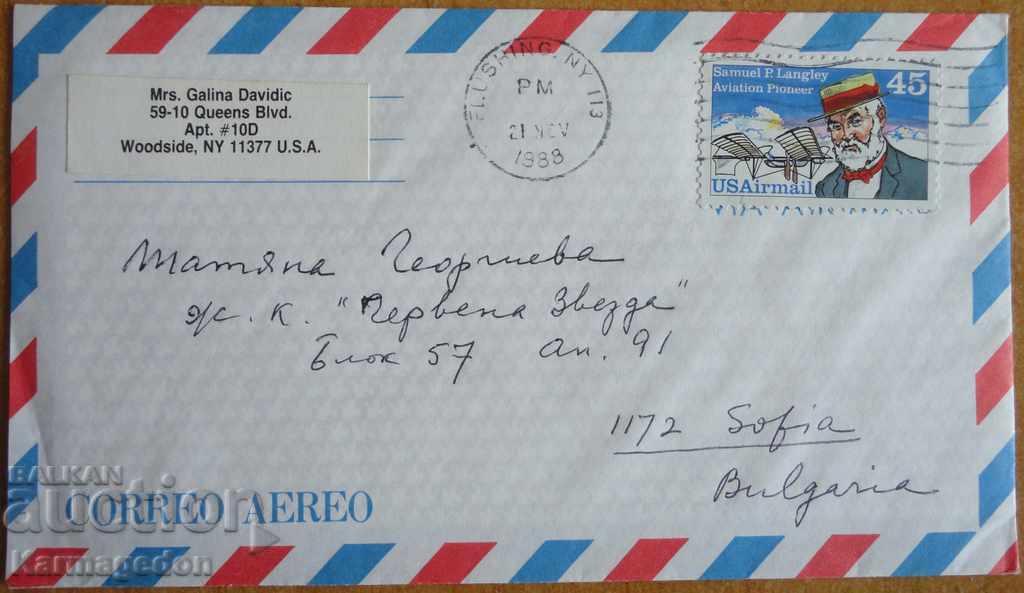 Mrs. Galina Davidic
59-10 Queens Blvd.
Apt. #10D
Woodside, NY 11377 U.S.A.
FLUSHING, NY 113
PM
21 NOV
1988
Samuel P. Langley
Aviation Pioneer
45
USAirmail
Татяна Георгиева
ж. к. "Червена Звезда"
Блок 57 Ап. 91
1172 Sofia
Bulgaria
CORREO AEREO
BALKAN
auction
Karmagedon